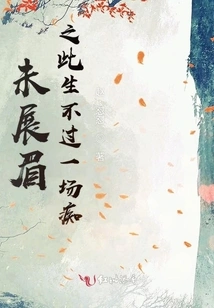 未展眉
之此生不过一场痴